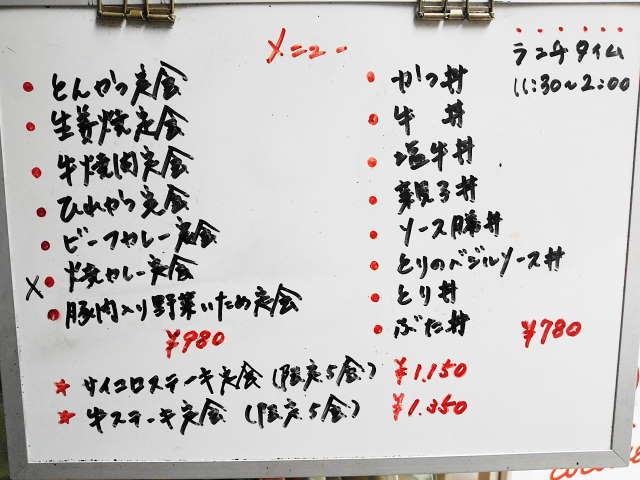 メニュー
ランチタイム
11:30〜2:00
とんかつ定食
生姜焼定食
牛焼肉定食
ひれかつ定食
ビーフカレー定食
焼カレー定食
豚肉入り野菜いため定食
¥980
かつ丼
牛丼
塩牛丼
親子丼
ソース勝丼
とりのベジルソース丼
とり丼
ぶた丼
¥780
サイコロステーキ定食(限定5食) ¥1.150
牛ステーキ定食(限定5食) ¥1.350